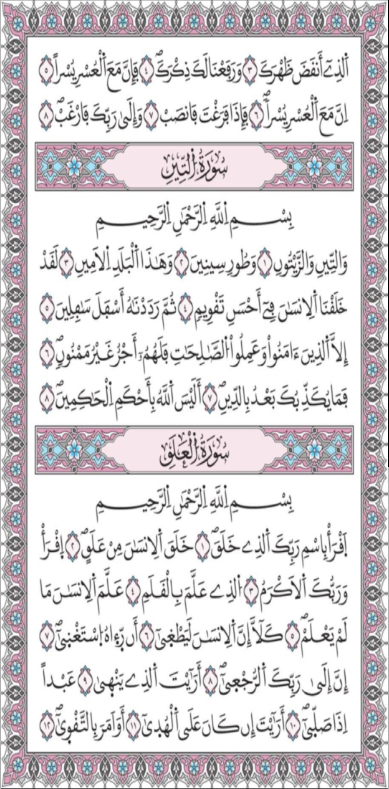 اَ۬لذِےٓ أَنقَضَ ظَهْرَكَ ۝٣ وَرَفَعْنَا لَكَ ذِكْرَكَۖ ۝٤ فَإِنَّ مَعَ اَ۬لْعُسْرِ يُسْراً ۝٥
اِنَّ مَعَ اَ۬لْعُسْرِ يُسْراٗۖ ۝٦ فَإِذَا فَرَغْتَ فَانصَبْ ۝٧ وَإِلَىٰ رَبِّكَ فَارْغَبۖ ۝٨
سُورَةُ اُ۬لتِّينِ
بِسْمِ اِ۬للَّهِ اِ۬لرَّحْمَٰنِ اِ۬لرَّحِيمِ
وَالتِّينِ وَالزَّيْتُونِ ۝١ وَطُورِ سِينِينَ ۝٢ وَهَٰذَا اَ۬لْبَلَدِ اِ۬لَامِينِ ۝٣ لَقَدْ
خَلَقْنَا اَ۬لِانسَٰنَ فِےٓ أَحْسَنِ تَقْوِيمٖ ۝٤ ثُمَّ رَدَدْنَٰهُ أَسْفَلَ سَٰفِلِينَ ۝٥
إِلَّا اَ۬لذِينَ ءَامَنُواْ وَعَمِلُواْ اُ۬لصَّٰلِحَٰتِ فَلَهُمُۥٓ أَجْرٌ غَيْرُ مَمْنُونٖۖ ۝٦
فَمَا يُكَذِّبُكَ بَعْدُ بِالدِّينِۖ ۝٧ أَلَيْسَ اَ۬للَّهُ بِأَحْكَمِ اِ۬لْحَٰكِمِينَۖ ۝٨
سُورَةُ اُ۬لْعَلَقِ
بِسْمِ اِ۬للَّهِ اِ۬لرَّحْمَٰنِ اِ۬لرَّحِيمِ
اِ۪قْرَأْ بِاسْمِ رَبِّكَ اَ۬لذِے خَلَقَۖ ۝١ خَلَقَ اَ۬لِانسَٰنَ مِنْ عَلَقٍۖ ۝٢ اِ۪قْرَأْ
وَرَبُّكَ اَ۬لَاكْرَمُ ۝٣ اُ۬لذِے عَلَّمَ بِالْقَلَمِ ۝٤ عَلَّمَ اَ۬لِانسَٰنَ مَا
لَمْ يَعْلَمْۖ ۝٥ كَلَّآ إِنَّ اَ۬لِانسَٰنَ لَيَطْغ۪ىٰٓ ۝٦ أَن رَّء۪اهُ اُ۪سْتَغْن۪ىٰٓۖ ۝٧
إِنَّ إِلَىٰ رَبِّكَ اَ۬لرُّجْع۪ىٰٓۖ ۝٨ أَرَٰٓيْتَ اَ۬لذِے يَنْه۪ىٰ ۝٩ عَبْداً
اِذَا صَلّ۪ىٰٓۖ ۝١٠ أَرَٰٓيْتَ إِن كَانَ عَلَى اَ۬لْهُد۪ىٰٓ ۝١١ أَوَ اَمَرَ بِالتَّقْو۪ىٰٓۖ ۝١٢